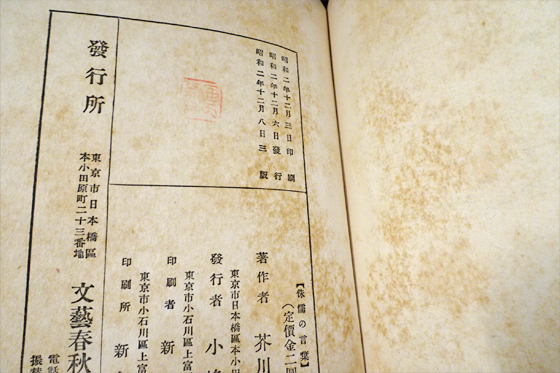 昭和二年十二月三日印刷
昭和二年十二月六日發行
昭和二年十二月八日三版
【侏儒の言葉】
(定價金二圓
著作者 芥川
東京市日本橋區本小田
發行者 小
東京市小石川區上富
印刷者 新
東京市小石川區上富
印刷所 新
發行所
東京市日本橋區
本小田原町二十三番地
文藝春秋
電話
振替